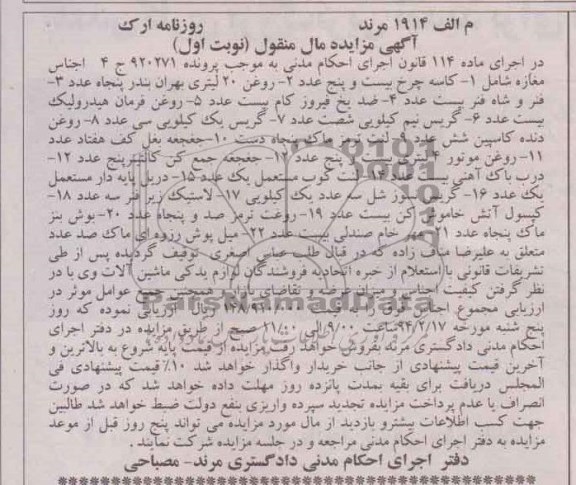 م الف ۱۹۱۴ مرند روزنامه ارک
آگهی مزایده مال منقول (نوبت اول)
در اجرای ماده ۱۱۴ قانون اجرای احکام مدنی به موجب پرونده ۹۲۰۲۷۱ ج ۴ اجناس
مغازه شامل ۱- کاسه چرخ بیست و پنج عدد ۲- روغن ۲۰ لیتری بهران بندر پنجاه عدد ۳-
فنر و شاه فنر بیست عدد ۴- ضد یخ فیروز کام بیست عدد ۵- روغن فرمان هیدرولیک
بیست عدد ۶- گریس نیم کیلویی شصت عدد ۷- گریس یک کیلویی سی عدد ۸- روغن
دنده کاسپین شش عدد ۹- لنت ترمز ماک پنجاه دست ۱۰- جغجغه بغل کف هفتاد عدد
۱۱- روغن موتور ۴ لیتری بیست و پنج عدد ۱۲- جغجغه جمع کن کانتینر پنج عدد ۱۳-
درب باک آهنی بیست عدد ۱۴- لنت کوب مستعمل یک عدد ۱۵- دریل پایه دار مستعمل
یک عدد ۱۶- گریس نسوز شل سه عدد یک کیلویی ۱۷- لاستیک زیر فنر سه عدد ۱۸-
کپسول آتش خاموش کن بیست عدد ۱۹- روغن ترمز صد و پنجاه عدد ۲۰- بوش بنز
ماک پنجاه عدد ۲۱- مهر خام صندلی بیست عدد ۲۲- میل پوش رزوه ای ماک صد عدد
متعلق به علیرضا مناف زاده که در قبال طلب عباس اصغری توقیف گردیده پس از طی
تشریفات قانونی با استعلام از خبره اتحادیه فروشندگان لوازم یدکی ماشین آلات وی با در
نظر گرفتن کیفیت اجناس و میزان عرضه و تقاضای بازار و همچنین جمیع عوامل موثر در
ارزیابی مجموع اجناس فوق را به قیمت ۱۴۸/۹۲۰/۰۰۰ ریال ارزیابی نموده که روز
پنج شنبه مورخه ۹۴/۲/۱۷ ساعت ۹/۰۰ الی ۱۱/۰۰ صبح از طریق مزایده در دفتر اجرای
احکام مدنی دادگستری مرند بفروش خواهد رفت مزایده از قیمت پایه شروع به بالاترین و
آخرین قیمت پیشنهادی از جانب خریدار واگذار خواهد شد ۱۰٪ قیمت پیشنهادی فی
المجلس دریافت برای بقیه بمدت پانزده روز مهلت داده خواهد شد که در صورت
انصراف یا عدم پرداخت مزایده تجدید سپرده واریزی بنفع دولت ضبط خواهد شد طالبین
جهت کسب اطلاعات بیشترو بازدید از مال مورد مزایده می تواند پنج روز قبل از موعد
مزایده به دفتر اجرای احکام مدنی مراجعه و در جلسه مزایده شرکت نمایند .
دفتر اجرای احکام مدنی دادگستری مرند- مصباحی
ParsNamadData